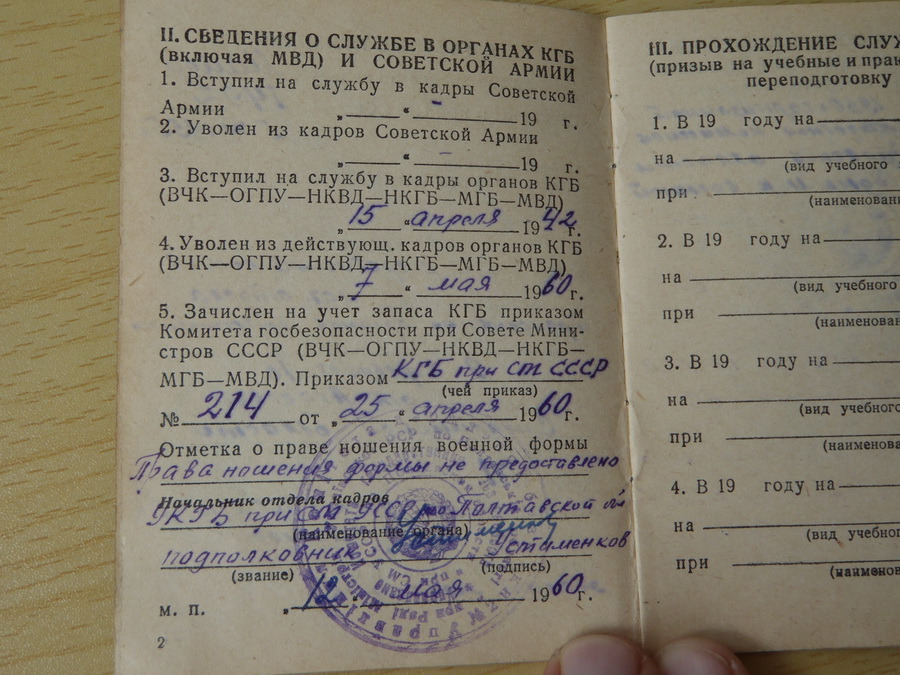 II. СВЕДЕНИЯ О СЛУЖБЕ В ОРГАНАХ КГБ
(включая МВД) И СОВЕТСКОЙ АРМИИ
1. Вступил на службу в кадры Советской
Армии „ “ - 19 г.
2. Уволен из кадров Советской Армии
„ “ - 19 г.
3. Вступил на службу в кадры органов КГБ
(ВЧК—ОГПУ—НКВД—НКГБ—МГБ—МВД)
„ 15 “ апреля 1942 г.
4. Уволен из действующ. кадров органов КГБ
(ВЧК—ОГПУ—НКВД—НКГБ—МГБ—МВД)
„ 7 “ мая 1960 г.
5. Зачислен на учет запаса КГБ приказом
Комитета госбезопасности при Совете Мини-
стров СССР (ВЧК—ОГПУ—НКВД—НКГБ—
МГБ—МВД). Приказом КГБ при СМ СССР
(чей приказ)
№ 214 от „ 25 “ апреля 1960 г.
Отметка о праве ношения военной формы
Права ношения формы не предоставлено
Начальник отдела кадров
УКГБ при СМ УССР по Полтавской
(наименование органа)
подполковник Устименков
(звание) (подпись)
м. п. „ 12 “ мая 1960 г.
2
III. ПРОХОЖДЕНИЕ
(призыв на учебные и
переподготовку
1. В 19 году на
на
(вид учебного
при
2. В 19 году на
на
(вид учебного
при
3. В 19 году на
на
(вид учебного
при
4. В 19 году на
на
(вид учебного
при